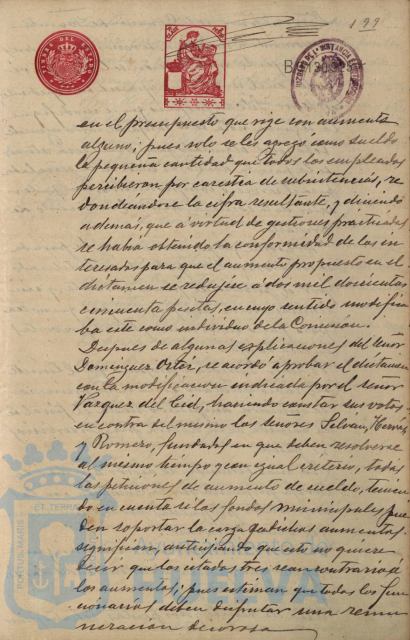 199
en el presupuesto que rige con aumento
alguno; pues solo se les agregó como sueldo
la pequeña cantidad que todos los empleados
percibieron por carestia de subsistencias, re
dondeandose la cifra resultante, y diciendo
además, que á virtud de gestiones practicadas
se habia obtenido la conformidad de los in
teresados para que el aumento propuesto en el
dictamen se redujese á dos mil doscientas
cincuenta pesetas, en cuyo sentido modifica
ba este como individuo de la Comisión.
Despues de algunas explicaciones del señor
Dominguez Ortiz, se acordó aprobar el dictamen
con la modificacion indicada por el señor
Vazquez del Cid, haciendo constar sus votos
en contra del mismo los señores
y Romero, fundados en que deben resolverse
al mismo tiempo y con igual criterio, todas
las peticiones de aumento de sueldo, tenien
do en cuenta si los fondos municipales pue
den soportar la carga que dichos aumentos
significan, anticipando que esto no quiere
decir que los citados tres sean contrarios á
los aumentos; pues estiman que todos los fun
cionarios deben disfrutar una remu
neración decorosa
PORTUS MARIS
ET TERRAE
Ayuntamiento de
HUELVA